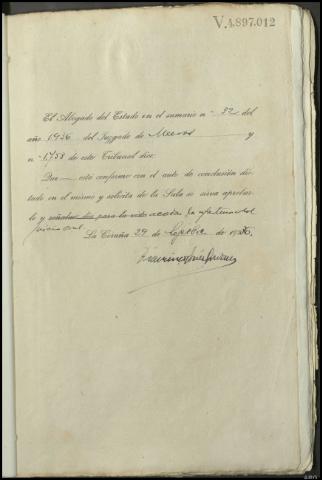 V.4.897.012
El Abogado del Estado en el sumario n.º 32 del
año 1936 del Juzgado de Muros y
n.º 1.758 de este Tribunal dice:
Que está conforme con el auto de conclusión dic-
tado en el mismo y solicita de la Sala se sirva aprobar-
lo y señalar día para la vista acordar la apertura del
juicio oral.
La Coruña 29 de de 1936.